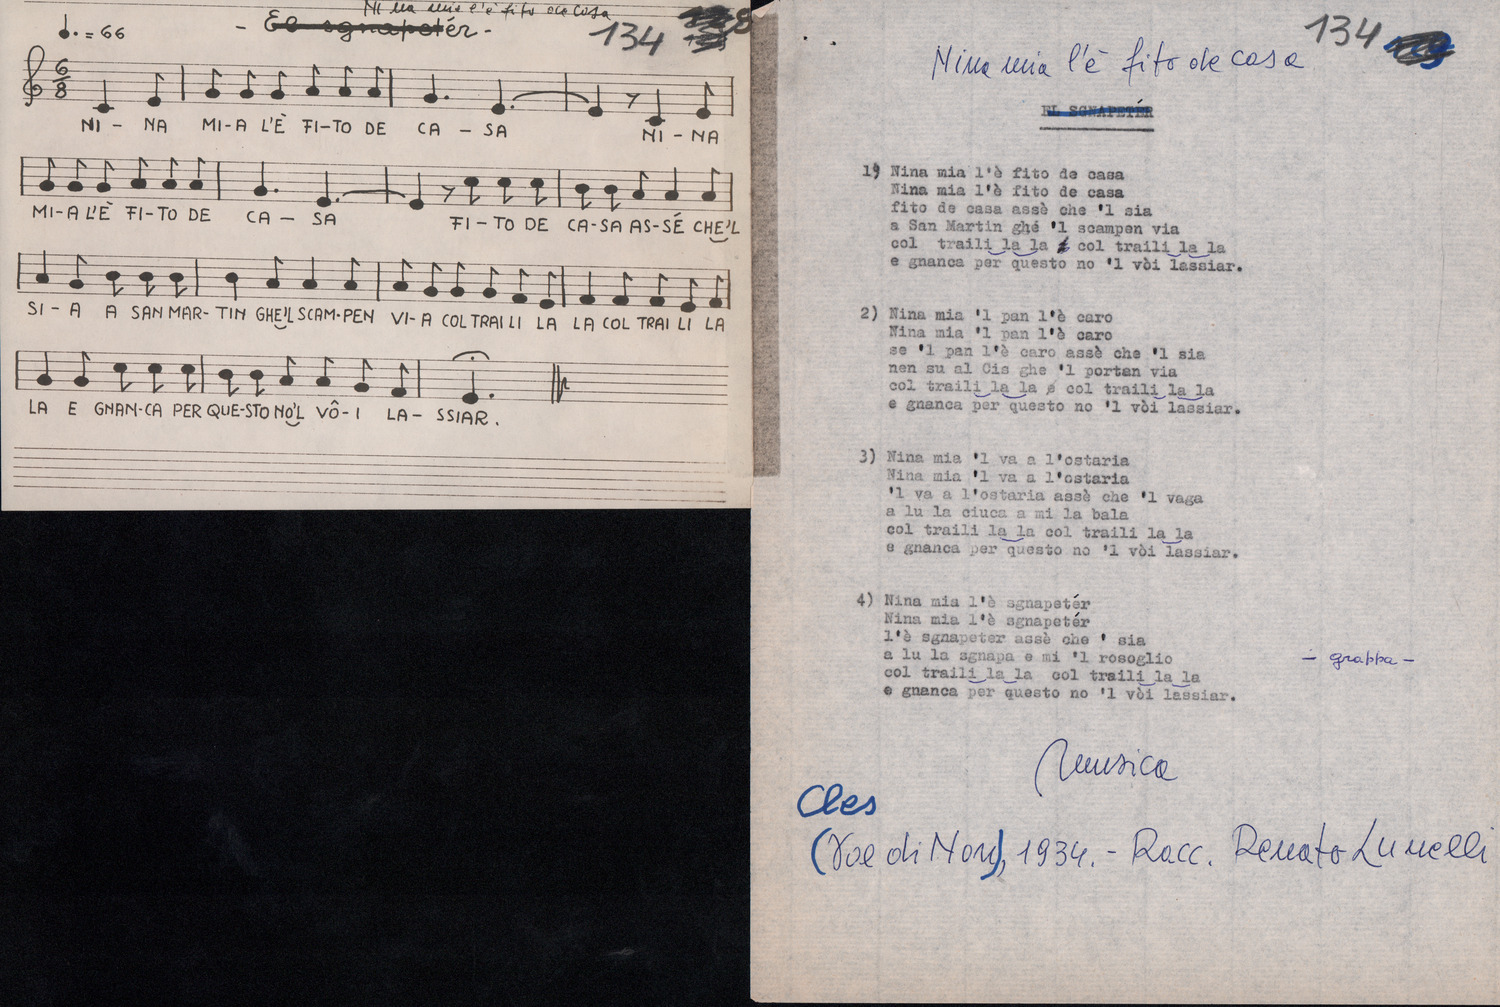 Nina mia l'è fito de casa
- El sgnapetér -
134
♩. = 66
NI - NA MI-A L'È FI-TO DE CA - SA NI - NA
MI-A L'È FI-TO DE CA - SA FI-TO DE CA-SA AS-SÉ CHE'L
SI-A A SAN MAR-TIN GHE'L SCAM-PEN VI-A COL TRAI LI LA LA COL TRAI LI LA
LA E GNAN-CA PER QUE-STO NO'L VÔ-I LA-SSIAR.
134
Nina mia l'è fito de casa
EL SGNAPETÉR
1) Nina mia l'è fito de casa
Nina mia l'è fito de casa
fito de casa assè che 'l sia
a San Martin ghé 'l scampen via
col traili la la col traili la la
e gnanca per questo no 'l vòi lassiar.
2) Nina mia 'l pan l'è caro
Nina mia 'l pan l'è caro
se 'l pan l'è caro assè che 'l sia
nen su al Cis ghe 'l portan via
col traili la la e col traili la la
e gnanca per questo no 'l vòi lassiar.
3) Nina mia 'l va a l'ostaria
Nina mia 'l va a l'ostaria
'l va a l'ostaria assè che 'l vaga
a lu la ciuca a mi la bala
col traili la la col traili la la
e gnanca per questo no 'l vòi lassiar.
4) Nina mia l'è sgnapetér
Nina mia l'è sgnapetér
l'è sgnapeter assè che ' sia
a lu la sgnapa e mi 'l rosoglio - grappa -
col traili la la col traili la la
e gnanca per questo no 'l vòi lassiar.
Musica
Cles
(Val di Non), 1934. - Racc. Renato Lunelli